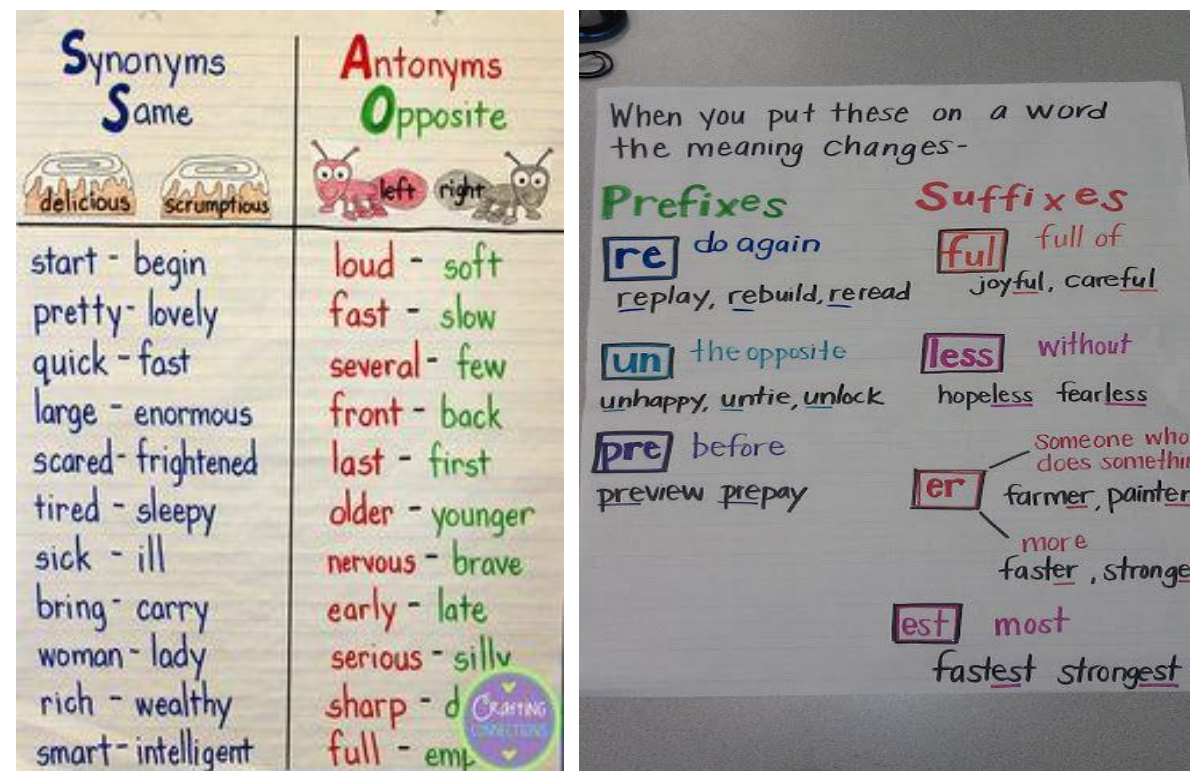 Synonyms
Same
delicious
scrumptious
start - begin
pretty - lovely
quick - fast
large - enormous
scared - frightened
tired - sleepy
sick - ill
bring - carry
woman - lady
rich - wealthy
smart - intelligent
Antonyms
Opposite
left right
loud - soft
fast - slow
several - few
front - back
last - first
older - younger
nervous - brave
early - late
serious - silly
sharp - d
full - emp
CRAFTING
CONNECTIONS
When you put these on a word
the meaning changes-
Prefixes
re do again
replay, rebuild, reread
un the opposite
unhappy, untie, unlock
pre before
preview prepay
Suffixes
ful full of
joyful, careful
less without
hopeless fearless
er
someone who
does somethin
farmer, painter
more
faster, stronge
est most
fastest strongest